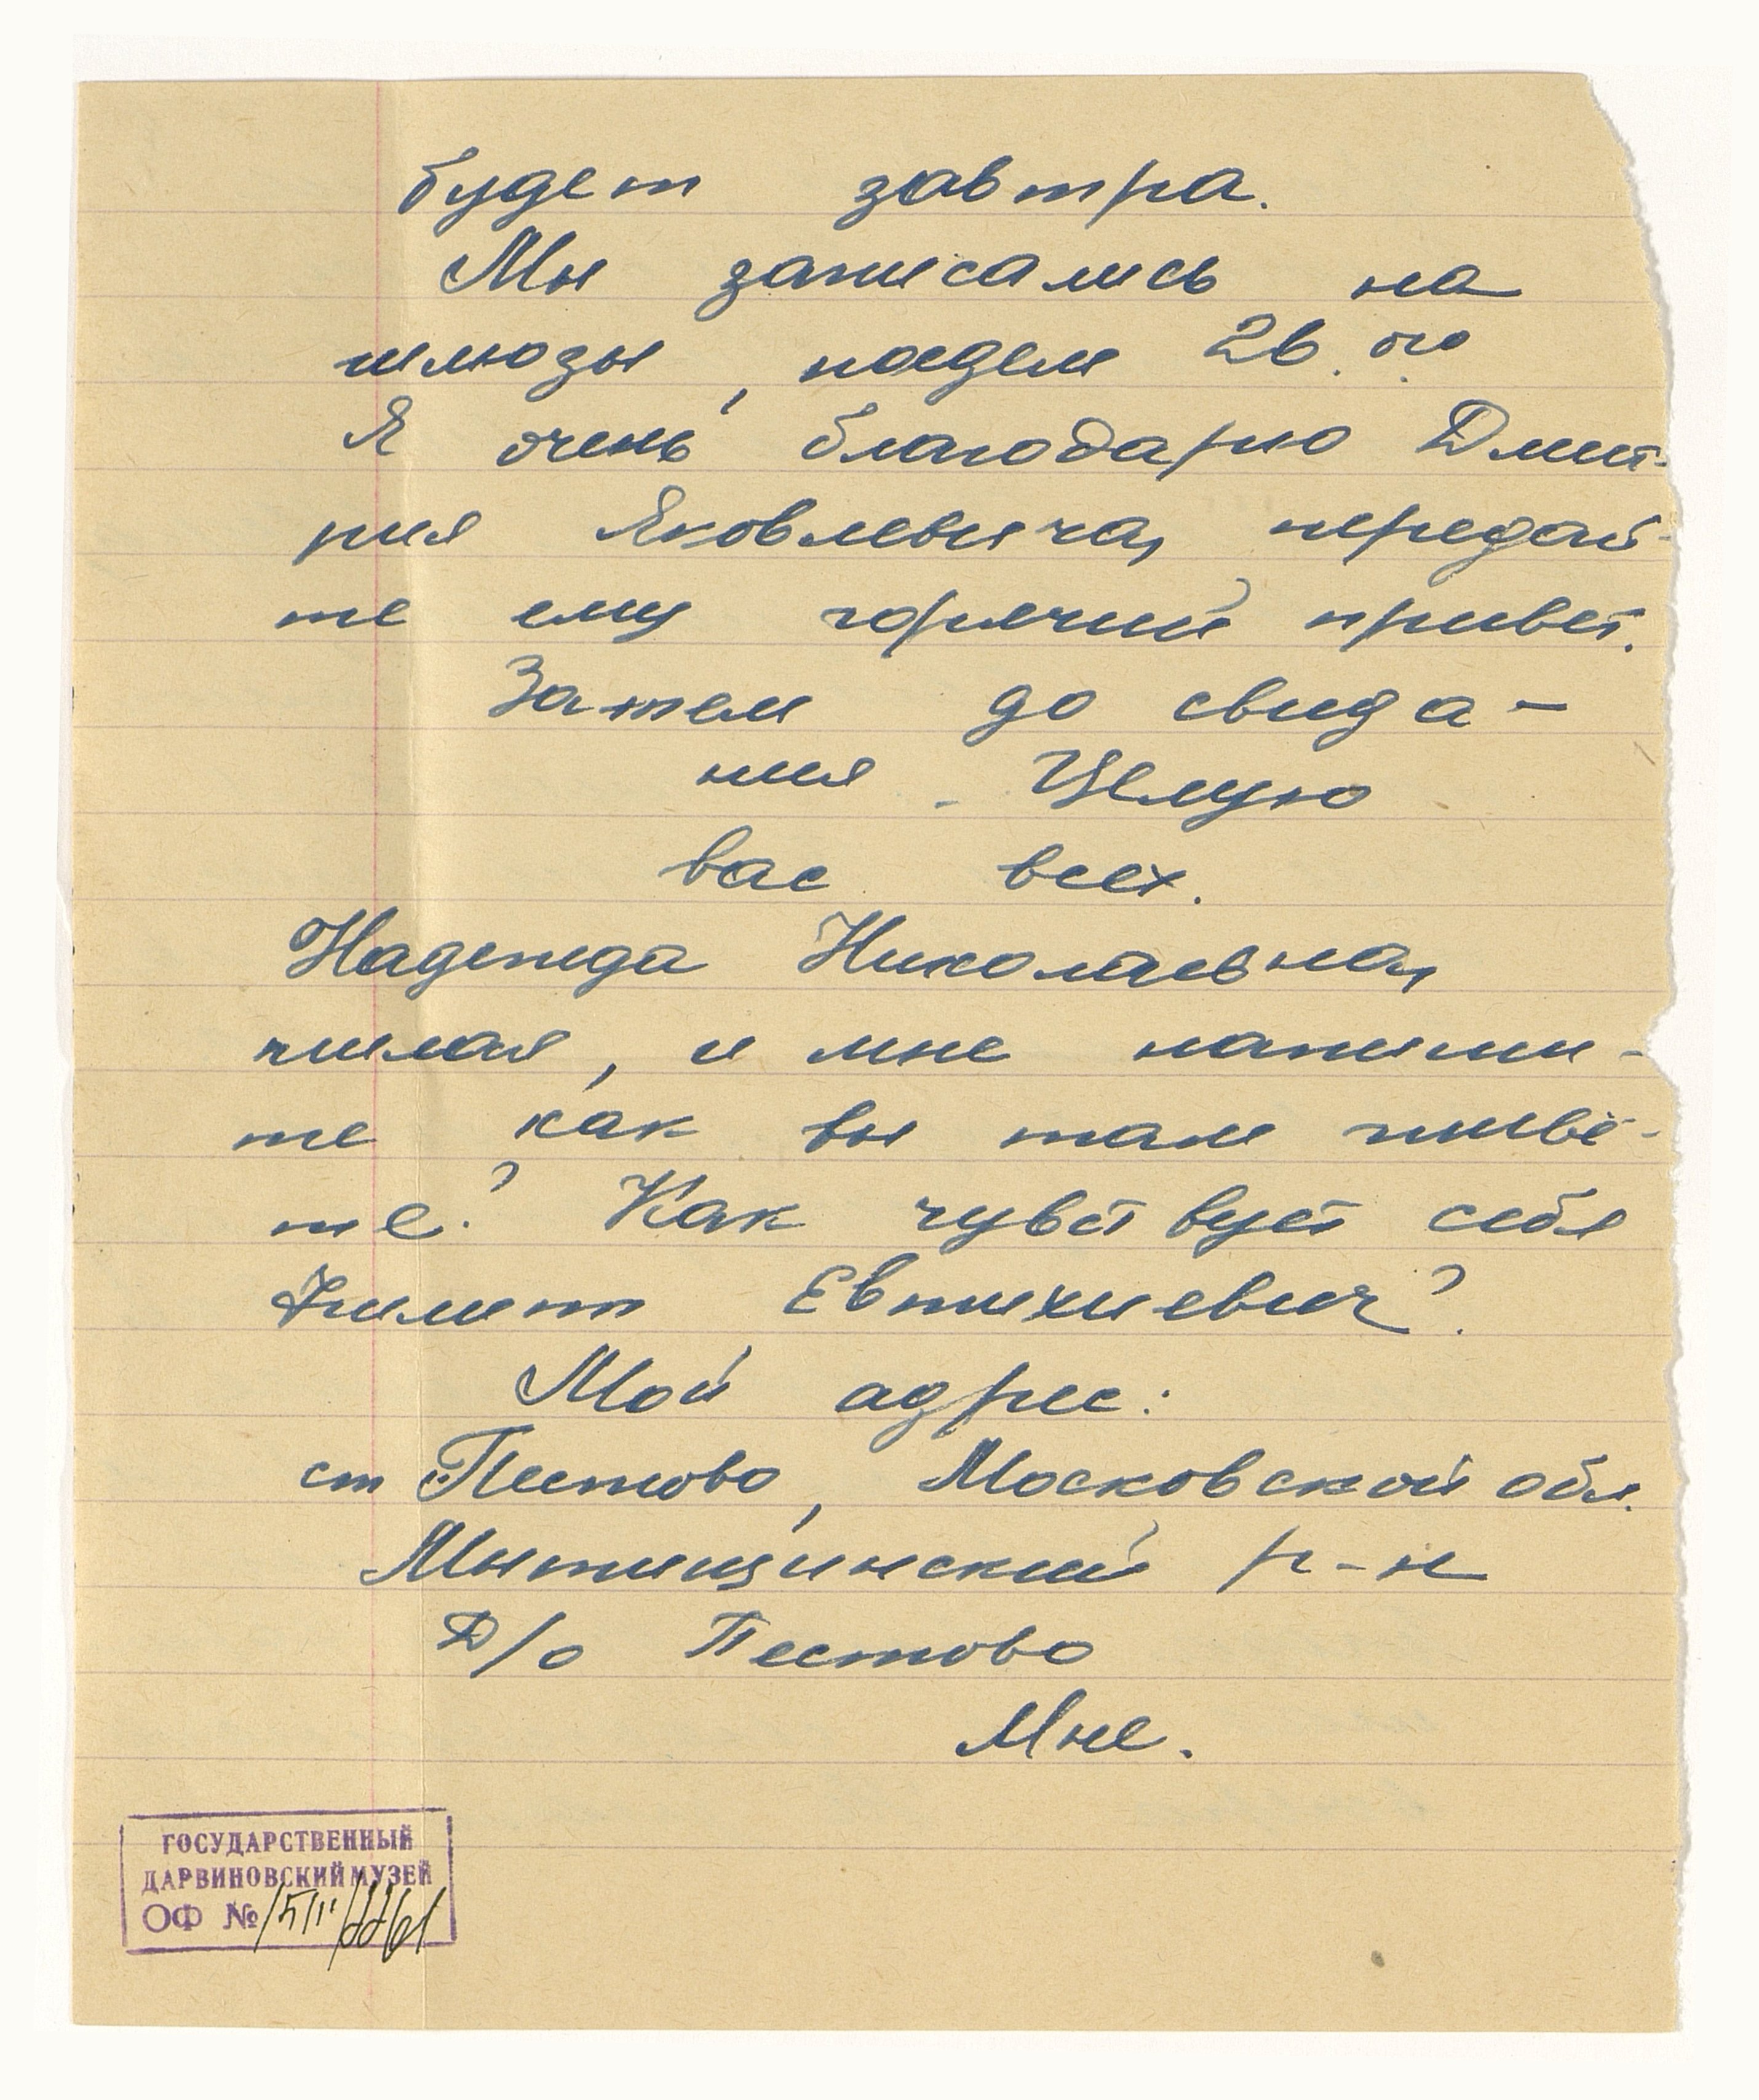 будет завтра.
Мы записались на
шлюзы, поедем 26.ого
Я очень благодарю Дмит-
рия Яковлевича, передай-
те ему горячий привет.
Затем до свида-
ния. Целую
вас всех.
Надежда Николаевна,
милая, и мне напиши-
те как вы там живё-
те? Как чувствует себя
Филипп Евтихиевич?
Мой адрес:
ст. Пестово, Московской обл.
Мытищинский р-н
Д/о Пестово
Мне.
ГОСУДАРСТВЕННЫЙ
ДАРВИНОВСКИЙ МУЗЕЙ
ОФ №